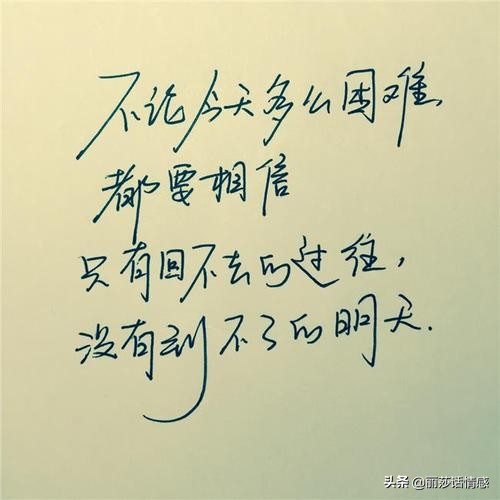 不论今天多么困难,
都要相信
只有回不去的过往,
没有到不了的明天.
头条 @丽莎话情感